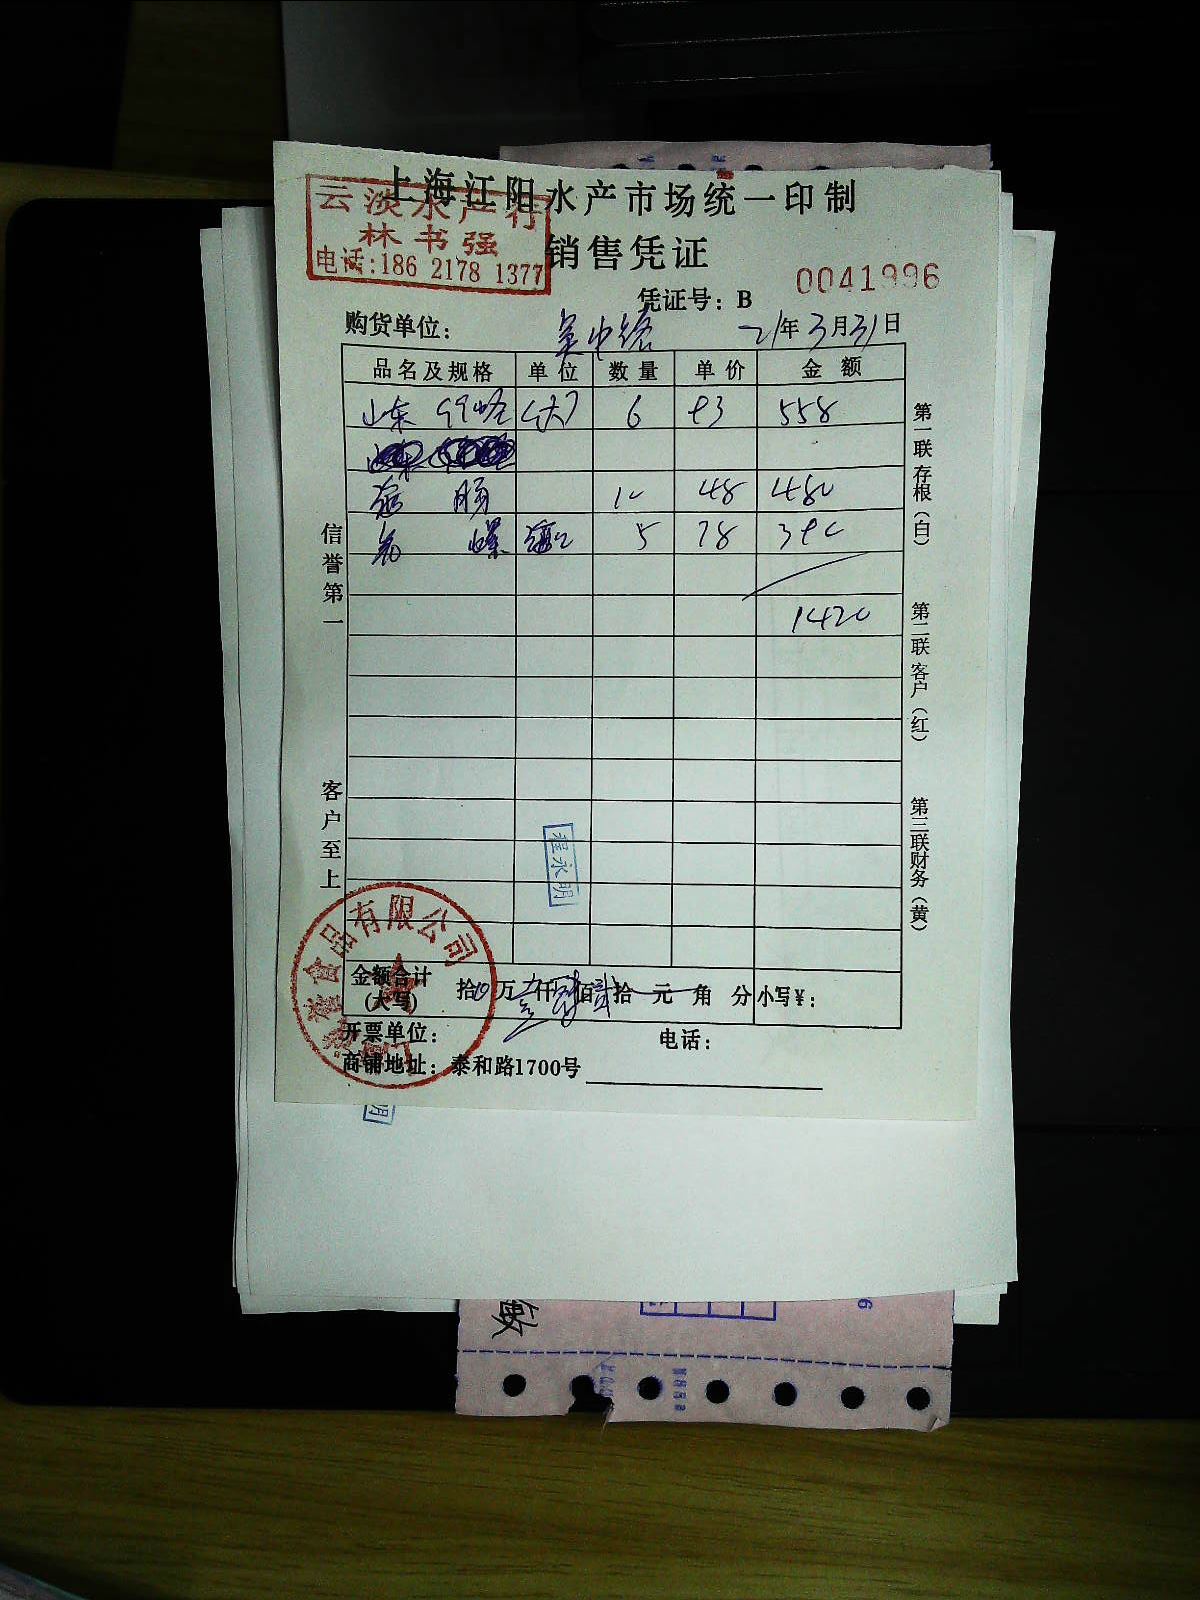 上海江阳水产市场统一印制
云淡水产行
林书强
电话:186 2178 1377
销售凭证
凭证号：B 0041996
购货单位： 吴中路 21年3月31日
品名及规格 单位 数量 单价 金额
山东 (大) 6 93 558
10 48 480
螺 5 78 390
1420
信誉第一
客户至上
第一联存根（白）
第二联客户（红）
第三联财务（黄）
程永明
食品有限公司
金额合计（大写） 拾 万 仟 佰 拾 元 角 分 小写¥：
开票单位： 电话：
商铺地址：泰和路1700号
明
敏